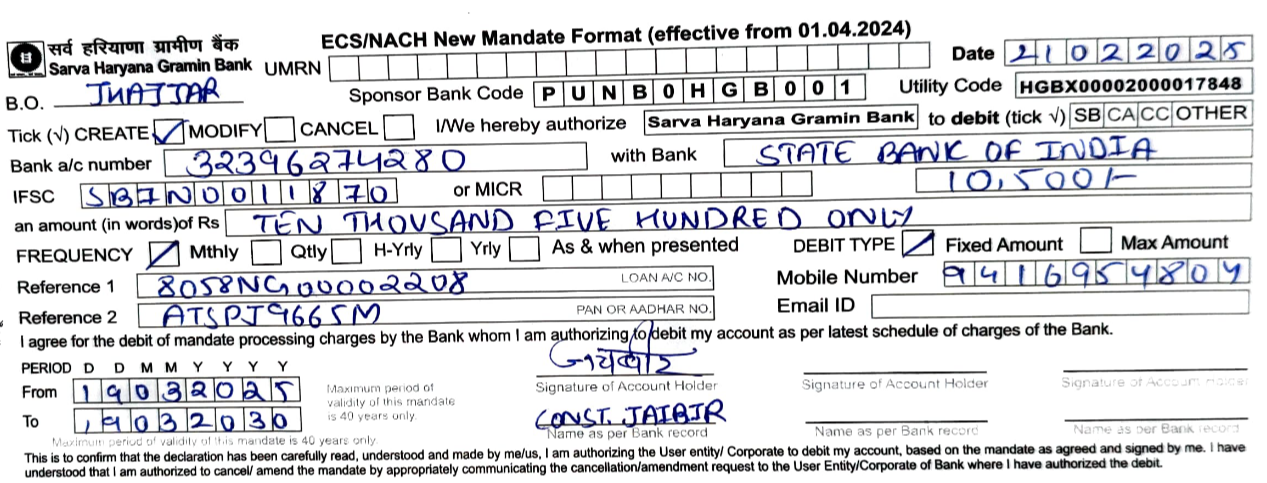 सर्व हरियाणा ग्रामीण बैंक
Sarva Haryana Gramin Bank
ECS/NACH New Mandate Format (effective from 01.04.2024)
UMRN
Date 21022025
B.O. JHAJJAR
Sponsor Bank Code PUNB0HGB001
Utility Code HGBX00002000017848
Tick (√) CREATE ✓ MODIFY CANCEL I/We hereby authorize Sarva Haryana Gramin Bank to debit (tick √) SB CA CC OTHER
Bank a/c number 32396274280 with Bank STATE BANK OF INDIA
IFSC SBIN0011870 or MICR 10,500/-
an amount (in words)of Rs TEN THOUSAND FIVE HUNDRED ONLY
FREQUENCY ✓ Mthly Qtly H-Yrly Yrly As & when presented DEBIT TYPE ✓ Fixed Amount Max Amount
Reference 1 8058NG00002208 LOAN A/C NO. Mobile Number 9416954804
Reference 2 ATSPJ9665M PAN OR AADHAR NO. Email ID
I agree for the debit of mandate processing charges by the Bank whom I am authorizing to debit my account as per latest schedule of charges of the Bank.
PERIOD D D M M Y Y Y Y
From 19032025
To 19032030
Maximum period of validity of this mandate is 40 years only.
Maximum period of
validity of this mandate
is 40 years only.
Signature of Account Holder Signature of Account Holder Signature of Account Holder
CONST. JAIBIR
Name as per Bank record Name as per Bank record Name as per Bank record
This is to confirm that the declaration has been carefully read, understood and made by me/us, I am authorizing the User entity/ Corporate to debit my account, based on the mandate as agreed and signed by me. I have
understood that I am authorized to cancel/ amend the mandate by appropriately communicating the cancellation/amendment request to the User Entity/Corporate of Bank where I have authorized the debit.